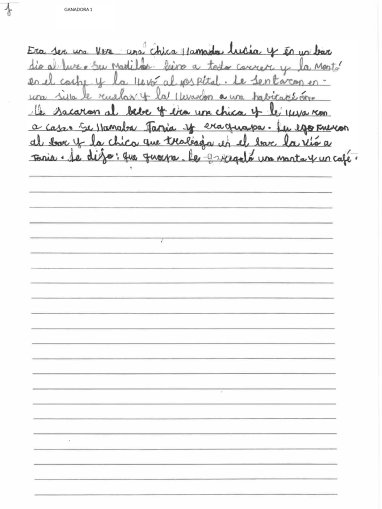 GANADORA 1
Era ser una vez una chica llamada lucia y en un bar
dio al luz. Su Madilon bino a todo correr y la Montó
en el coche y la llevó al jospital. Le sentaron en -
una silla de ruedas y la llevaron a una habitación.
Le sacaron al bebe y era una chica y le llevaron
a casa. Se llamaba Tania y era guapa. Lu ego fueron
al bar y la chica que trabaja en el bar la vió a
Tania. Le dijo: que guapa. Le regaló una manta y un café.